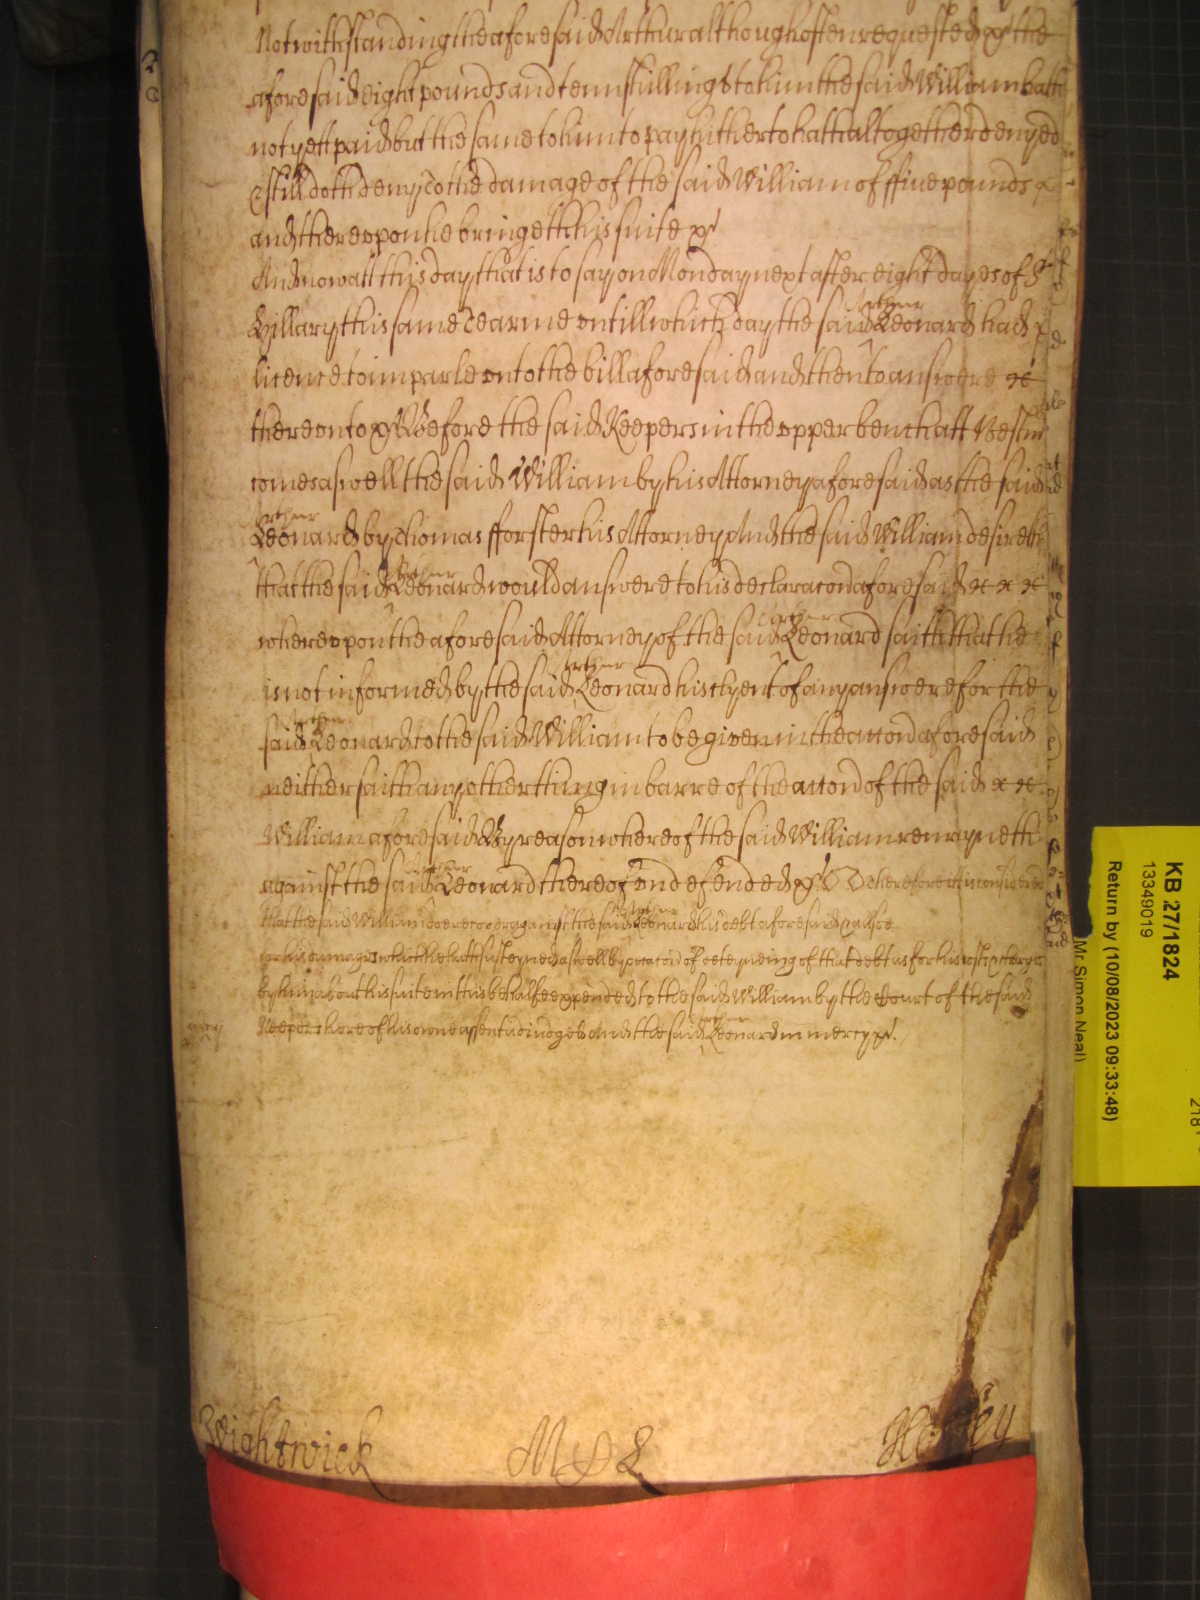 Notwithstanding the aforesaid Arthur although often requested &c the
aforesaid eight pounds and tenn shillings to him the said William hath
not yett paid but the same to him to pay hitherto hath altogether denyed
& still doth deny to the damage of the said William of ffive pounds x
and thereupon he bringeth his suite &c
And now att this day that is to say on Monday next after eight dayes of St
Hillary this same Tearme untill which day the said ^Arthur Leonard had
licence to imparle unto the bill aforesaid and then to answere x
thereunto &c Before the said Keepers in the upper bench att Westmr
comes aswell the said William by his Attorney aforesaid as the said
^Arthur Leonard by Thomas fforster his Attorney And the said William desireth
that the said ^Arthur Leonard would answere to his declaracon aforesaid x x x
whereupon the aforesaid Attorney of the said ^Arthur Leonard saith that he
is not informed by the said ^Arthur Leonard his clyent of any answere for the
said ^Arthur Leonard to the said William to be given in the accon aforesaid
neither saith any other thing in barre of the accon of the said x x
William aforesaid By reason whereof the said William remayneth
against the said ^Arthur Leonard thereof undefended &c Therefore itt is considered
that the said William doe recover against the said ^Arthur Leonard his debt aforesaid & allsoe
for his damages which he hath susteyned aswell by occacon of deteyneing of that debt as for his costs & charges
by him about his suite in this behalfe expended to the said William by the Court of the said
Keepers here of his owne assent adiudged And the said ^Arthur Leonard in mercy &c.
mcy
Wightwick
M S &
Hervey
KB 27/1824
13349019
Return by (10/08/2023 09:33:48)
Mr Simon Neal)